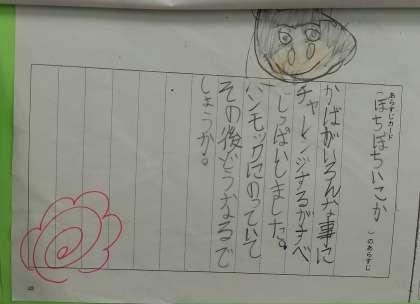 あらすじカード
（ぼちぼちいこか）のあらすじ
かばがいろんな事に
チャレンジするがすべ
しっぱいしました。
ハンモックにのっていて
その後どうなるで
しょうか。